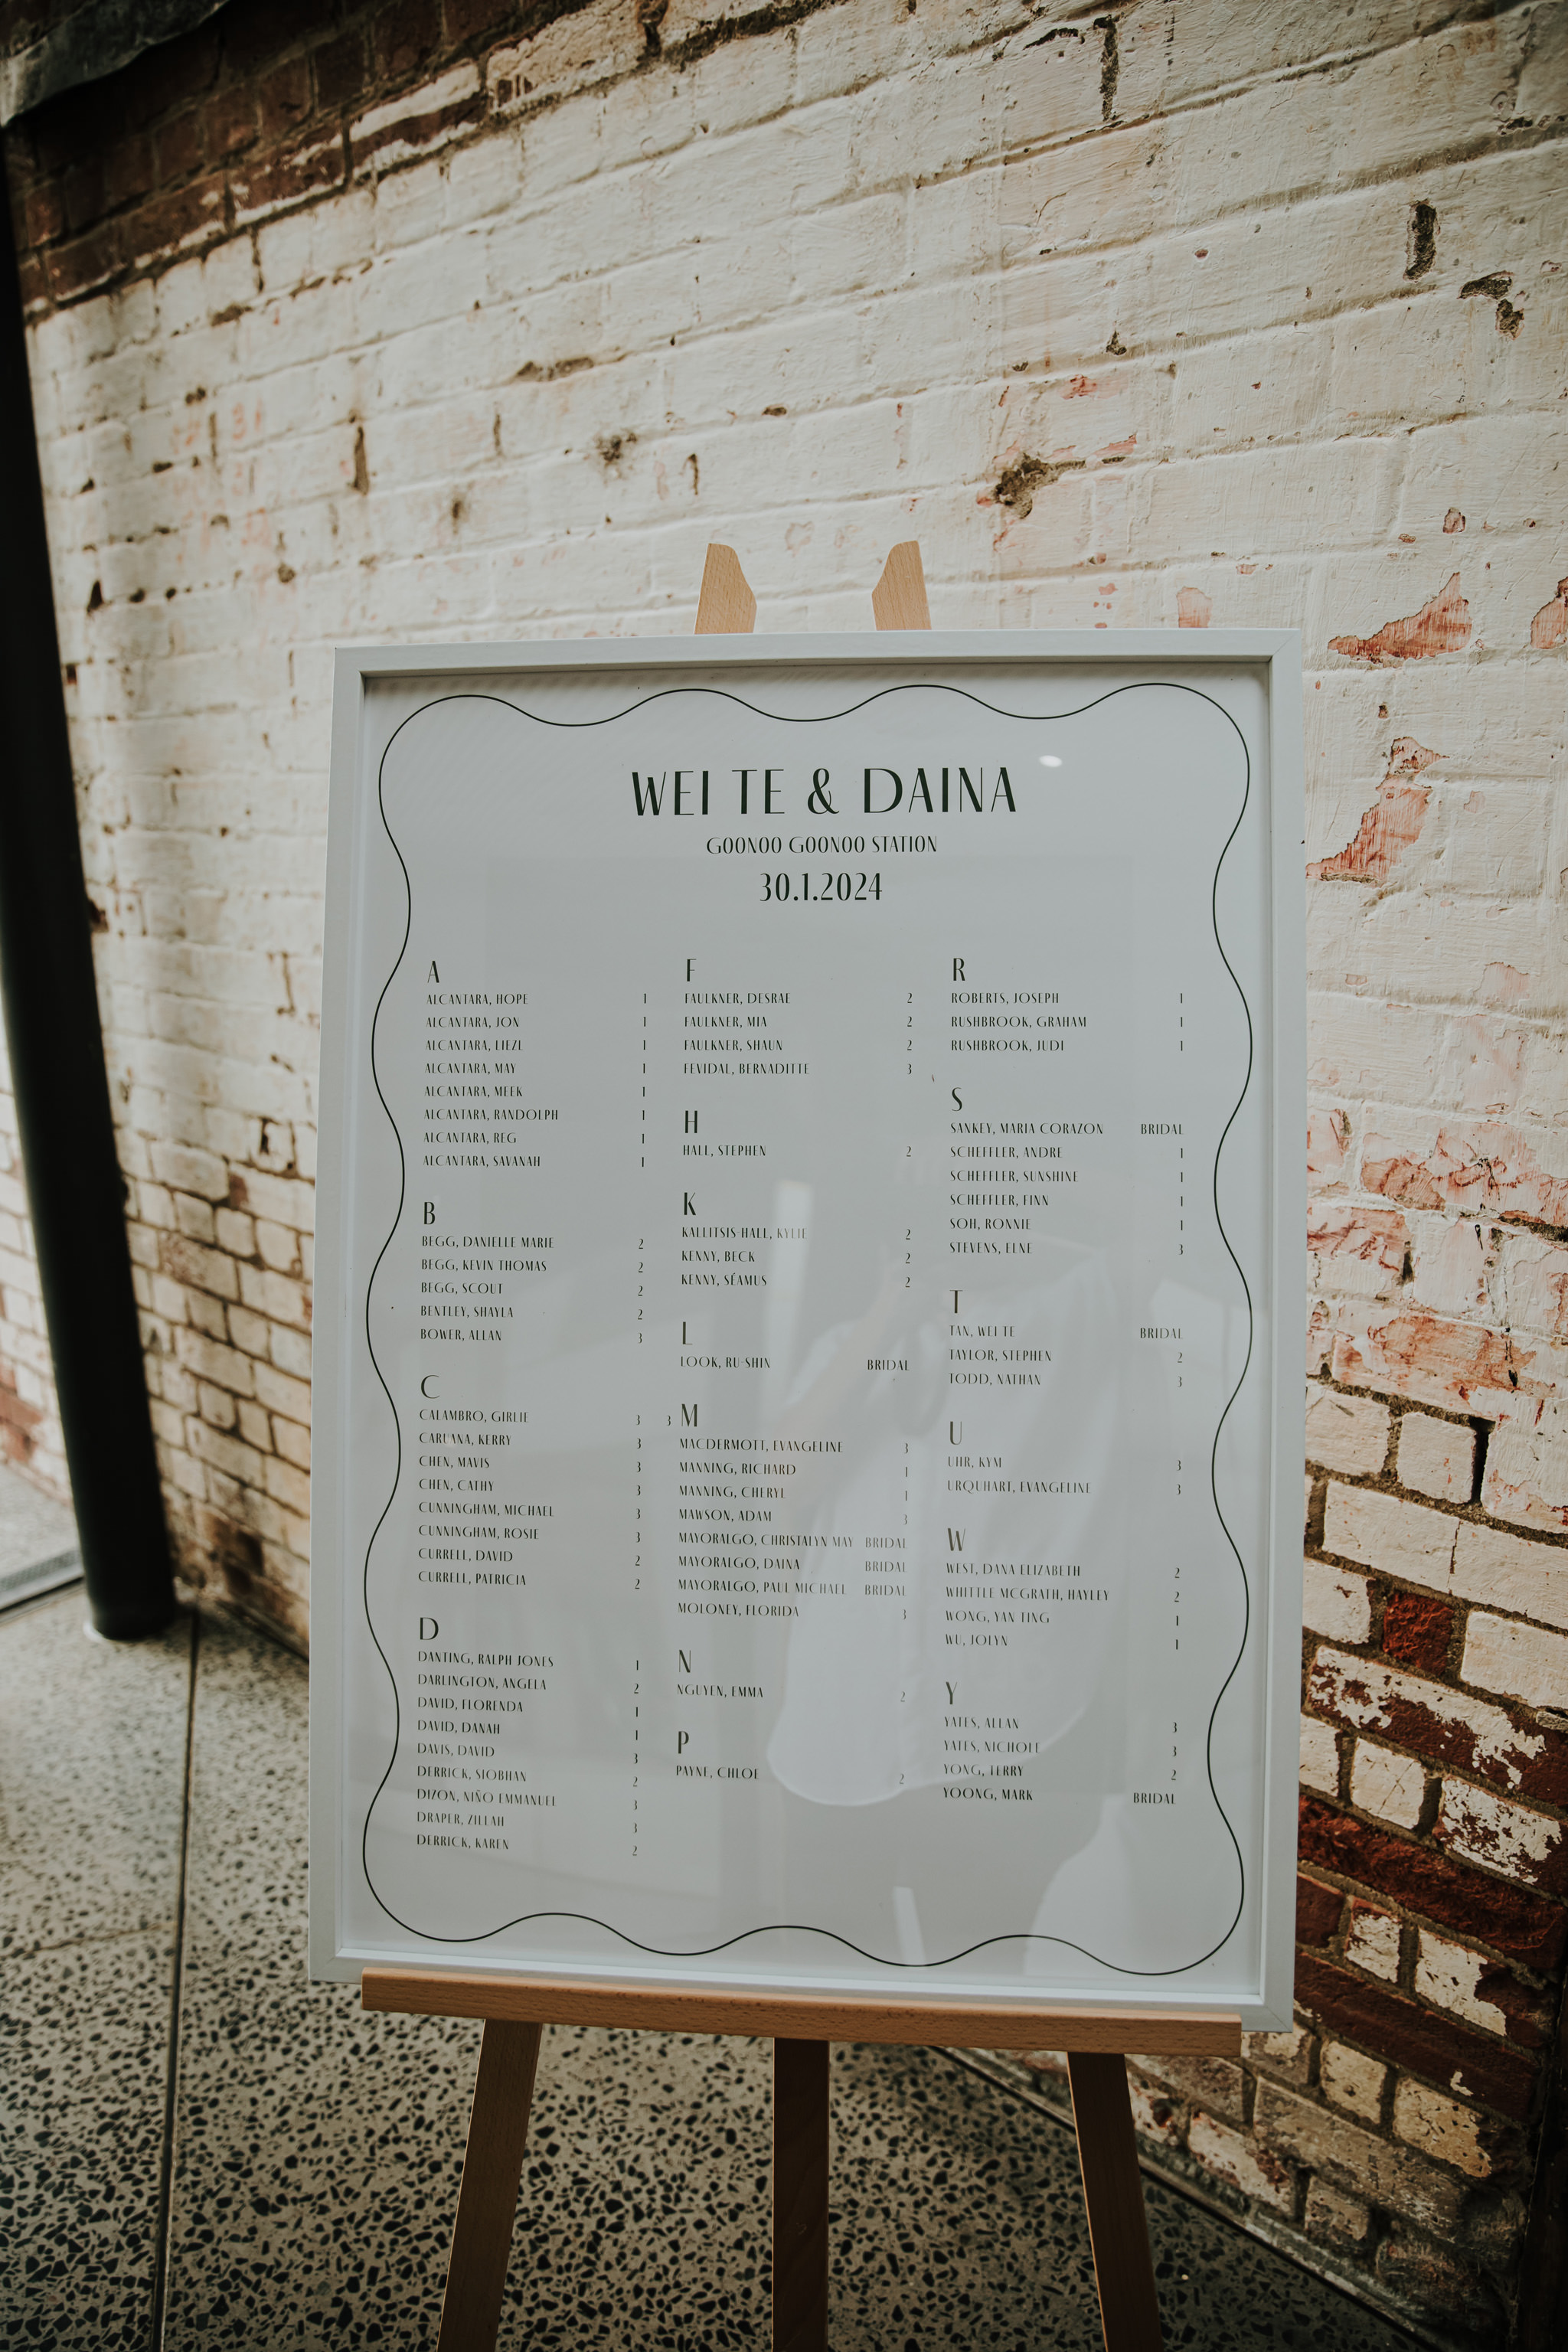 WEI TE & DAINA
GOONOO GOONOO STATION
30.1.2024
A
ALCANTARA, HOPE 1
ALCANTARA, JON 1
ALCANTARA, LIEZL 1
ALCANTARA, MAY 1
ALCANTARA, MEEK 1
ALCANTARA, RANDOLPH 1
ALCANTARA, REG 1
ALCANTARA, SAVANAH 1
B
BEGG, DANIELLE MARIE 2
BEGG, KEVIN THOMAS 2
BEGG, SCOUT 2
BENTLEY, SHAYLA 2
BOWER, ALLAN 3
C
CALAMBRO, GIRLIE 3 3
CARUANA, KERRY 3
CHEN, MAVIS 3
CHEN, CATHY 3
CUNNINGHAM, MICHAEL 3
CUNNINGHAM, ROSIE 3
CURRELL, DAVID 2
CURRELL, PATRICIA 2
D
DANTING, RALPH JONES 1
DARLINGTON, ANGELA 2
DAVID, FLORENDA 1
DAVID, DANAH 1
DAVIS, DAVID 3
DERRICK, SIOBHAN 2
DIZON, NIÑO EMMANUEL 3
DRAPER, ZILLAH 3
DERRICK, KAREN 2
F
FAULKNER, DESRAE 2
FAULKNER, MIA 2
FAULKNER, SHAUN 2
FEVIDAL, BERNADITTE 3
H
HALL, STEPHEN 2
K
KALLITSIS-HALL, KYLIE 2
KENNY, BECK 2
KENNY, SÉAMUS 2
L
LOOK, RU-SHIN BRIDAL
M
MACDERMOTT, EVANGELINE 3
MANNING, RICHARD 1
MANNING, CHERYL 1
MAWSON, ADAM 3
MAYORALGO, CHRISTALYN MAY BRIDAL
MAYORALGO, DAINA BRIDAL
MAYORALGO, PAUL MICHAEL BRIDAL
MOLONEY, FLORIDA 3
N
NGUYEN, EMMA 2
P
PAYNE, CHLOE 2
R
ROBERTS, JOSEPH 1
RUSHBROOK, GRAHAM 1
RUSHBROOK, JUDI 1
S
SANKEY, MARIA CORAZON BRIDAL
SCHEFFLER, ANDRE 1
SCHEFFLER, SUNSHINE 1
SCHEFFLER, FINN 1
SOH, RONNIE 1
STEVENS, ELNE 3
T
TAN, WEI TE BRIDAL
TAYLOR, STEPHEN 2
TODD, NATHAN 3
U
UHR, KYM 3
URQUHART, EVANGELINE 3
W
WEST, DANA ELIZABETH 2
WHITTLE MCGRATH, HAYLEY 2
WONG, YAN TING 1
WU, JOLYN 1
Y
YATES, ALLAN 3
YATES, NICHOLE 3
YONG, TERRY 2
YOONG, MARK BRIDAL